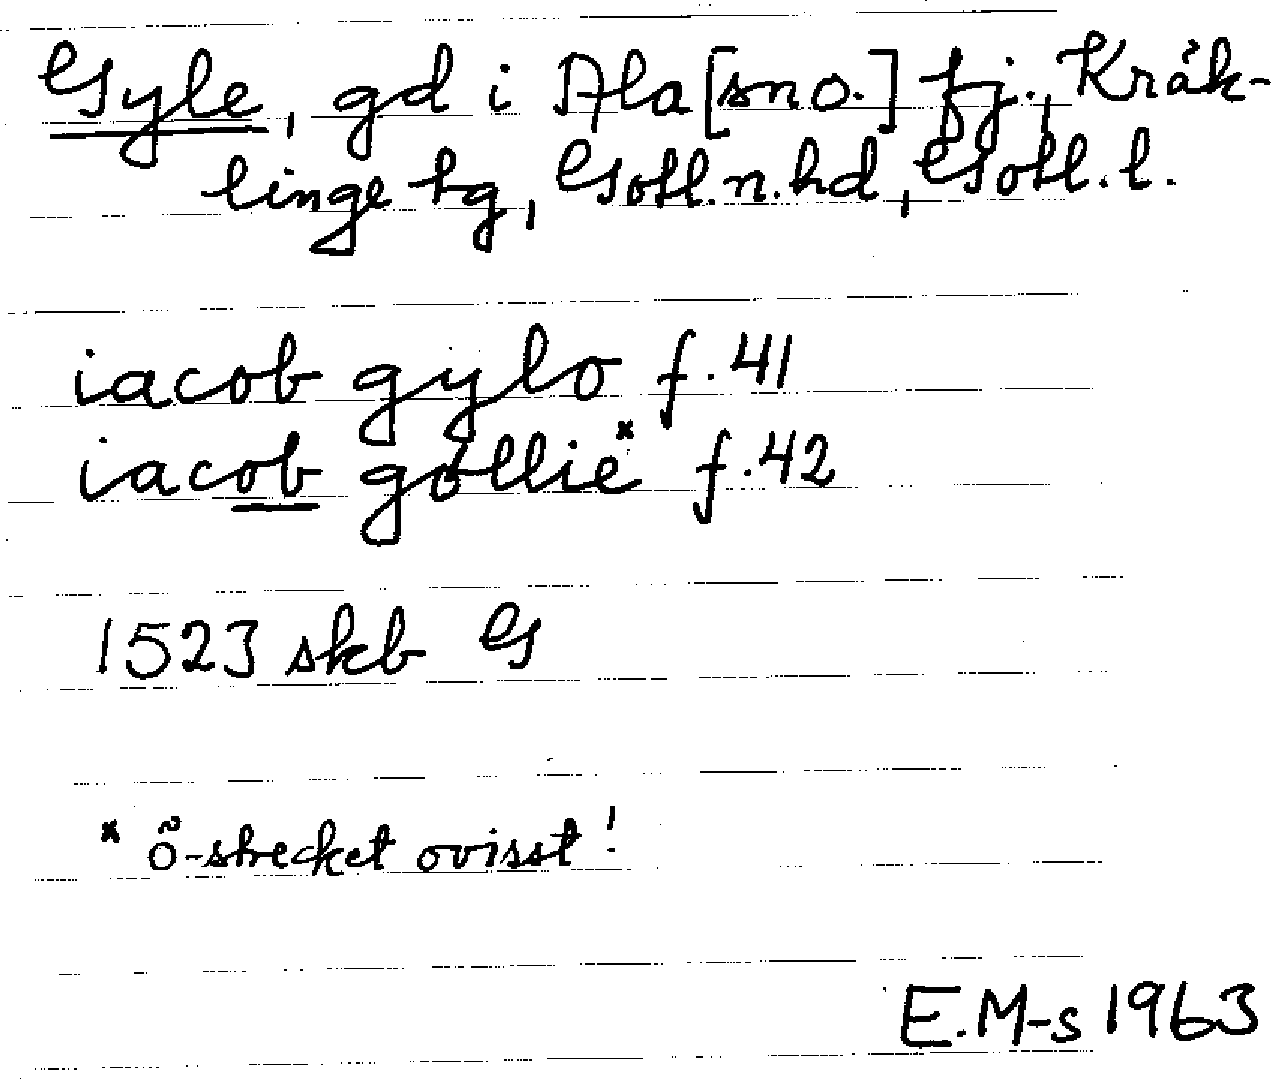 Gyle, gd i Ala [sno.] fj., Kräk-
linge tg, Gotl. n. hd, Gotl. l.
iacob gylo f. 41
iacob göllie x f. 42
1523 skb G
x ö-strecket ovisst!
E. M-s 1963